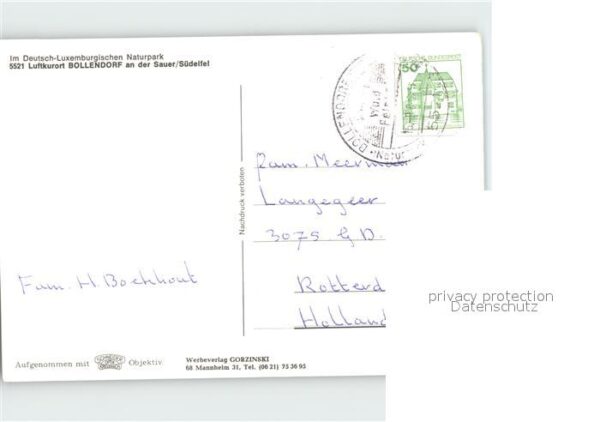 Im Deutsch-Luxemburgischen Naturpark
5521 Luftkurort BOLLENDORF an der Sauer/Südeifel
50
BOLLENDORF
Nachdruck verboten
Fam. Meerman
Langegeer
3075 GD.
Rotterd
Holland
Fam. H. Boekhout
privacy protection
Datenschutz
Aufgenommen mit Objektiv
Werbeverlag GORZINSKI
68 Mannheim 31, Tel. (06 21) 75 36 95